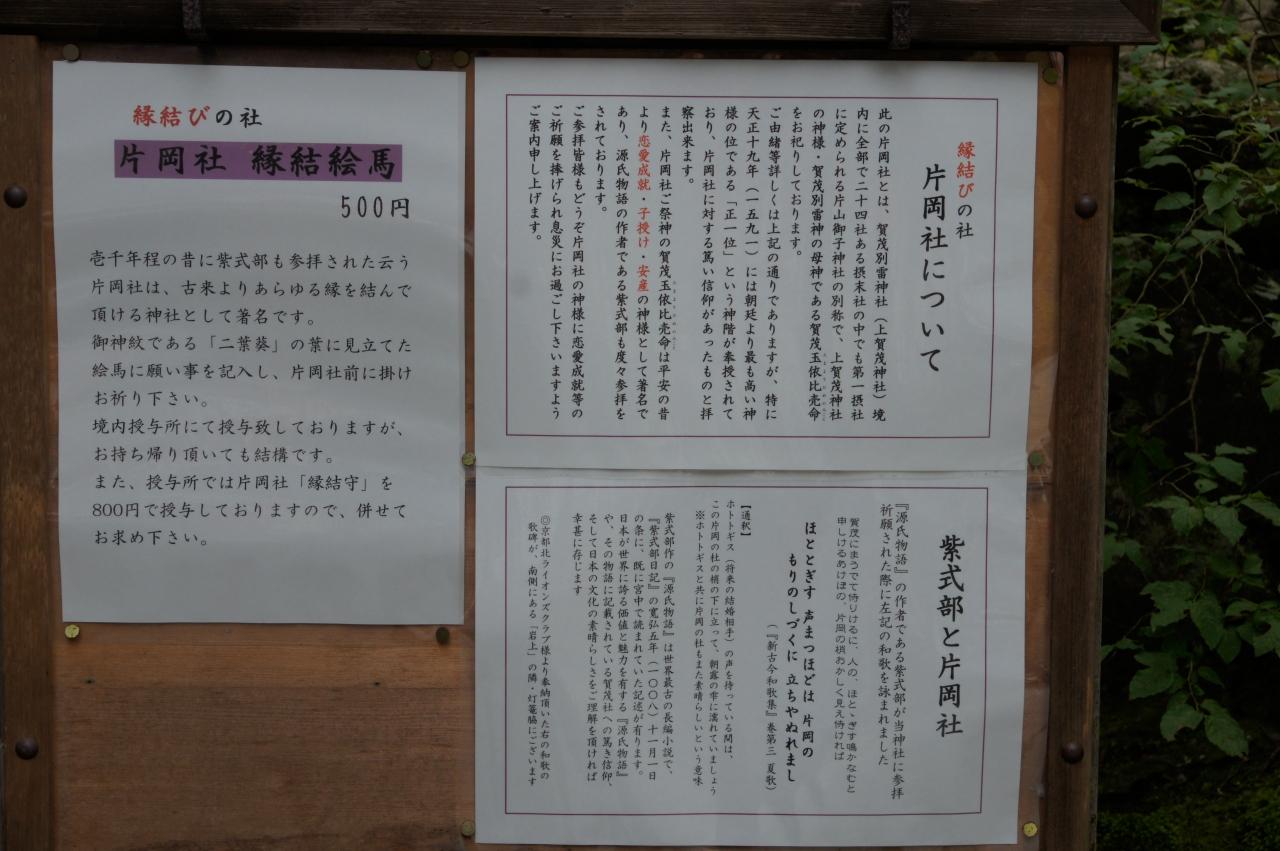 縁結びの社
片岡社 縁結絵馬
500円
壱千年程の昔に紫式部も参拝された云う
片岡社は、古来よりあらゆる縁を結んで
頂ける神社として著名です。
御神紋である「二葉葵」の葉に見立てた
絵馬に願い事を記入し、片岡社前に掛け
お祈り下さい。
境内授与所にて授与致しておりますが、
お持ち帰り頂いても結構です。
また、授与所では片岡社「縁結守」を
800円で授与しておりますので、併せて
お求め下さい。
縁結びの社
片岡社について
此の片岡社とは、賀茂別雷神社（上賀茂神社）境
内に全部で二十四社ある摂末社の中でも第一摂社
に定められる片山御子神社の別称で、上賀茂神社
の神様・賀茂別雷神の母神である賀茂玉依比売命
をお祀りしております。
ご由緒等詳しくは上記の通りでありますが、特に
天正十九年（一五九一）には朝廷より最も高い神
様の位である「正一位」という神階が奉授されて
おり、片岡社に対する篤い信仰があったものと拝
察出来ます。
また、片岡社ご祭神の賀茂玉依比売命は平安の昔
より恋愛成就・子授け・安産の神様として著名で
あり、源氏物語の作者である紫式部も度々参拝を
されております。
ご参拝皆様もどうぞ片岡社の神様に恋愛成就等の
ご祈願を捧げられ息災にお過ごし下さいますよう
ご案内申し上げます。
紫式部と片岡社
『源氏物語』の作者である紫式部が当神社に参拝
祈願された際に左記の和歌を詠まれました
賀茂にまうでて侍りけるに、人の、ほとゝぎす鳴かなむと
申しけるあけぼの、片岡の梢おかしく見え侍ければ
ほととぎす 声まつほどは 片岡の
もりのしづくに 立ちやぬれまし
（『新古今和歌集』巻第三 夏歌）
【通釈】
ホトトギス（将来の結婚相手）の声を待っている間は、
この片岡の社の梢の下に立って、朝露の雫に濡れていましょう
※ホトトギスと共に片岡の杜もまた素晴らしいという意味
紫式部作の『源氏物語』は世界最古の長編小説で、
『紫式部日記』の寛弘五年（一〇〇八）十一月一日
の条に、既に宮中で読まれていた記述が有ります。
日本が世界に誇る価値と魅力を有する『源氏物語』
や、その物語に記載されている賀茂社への篤き信仰、
そして日本の文化の素晴らしさをご理解を頂ければ
幸甚に存じます
◎京都北ライオンズクラブ様より奉納頂いた右の和歌の
歌碑が、南側にある「岩上」の隣・灯篭脇にございます